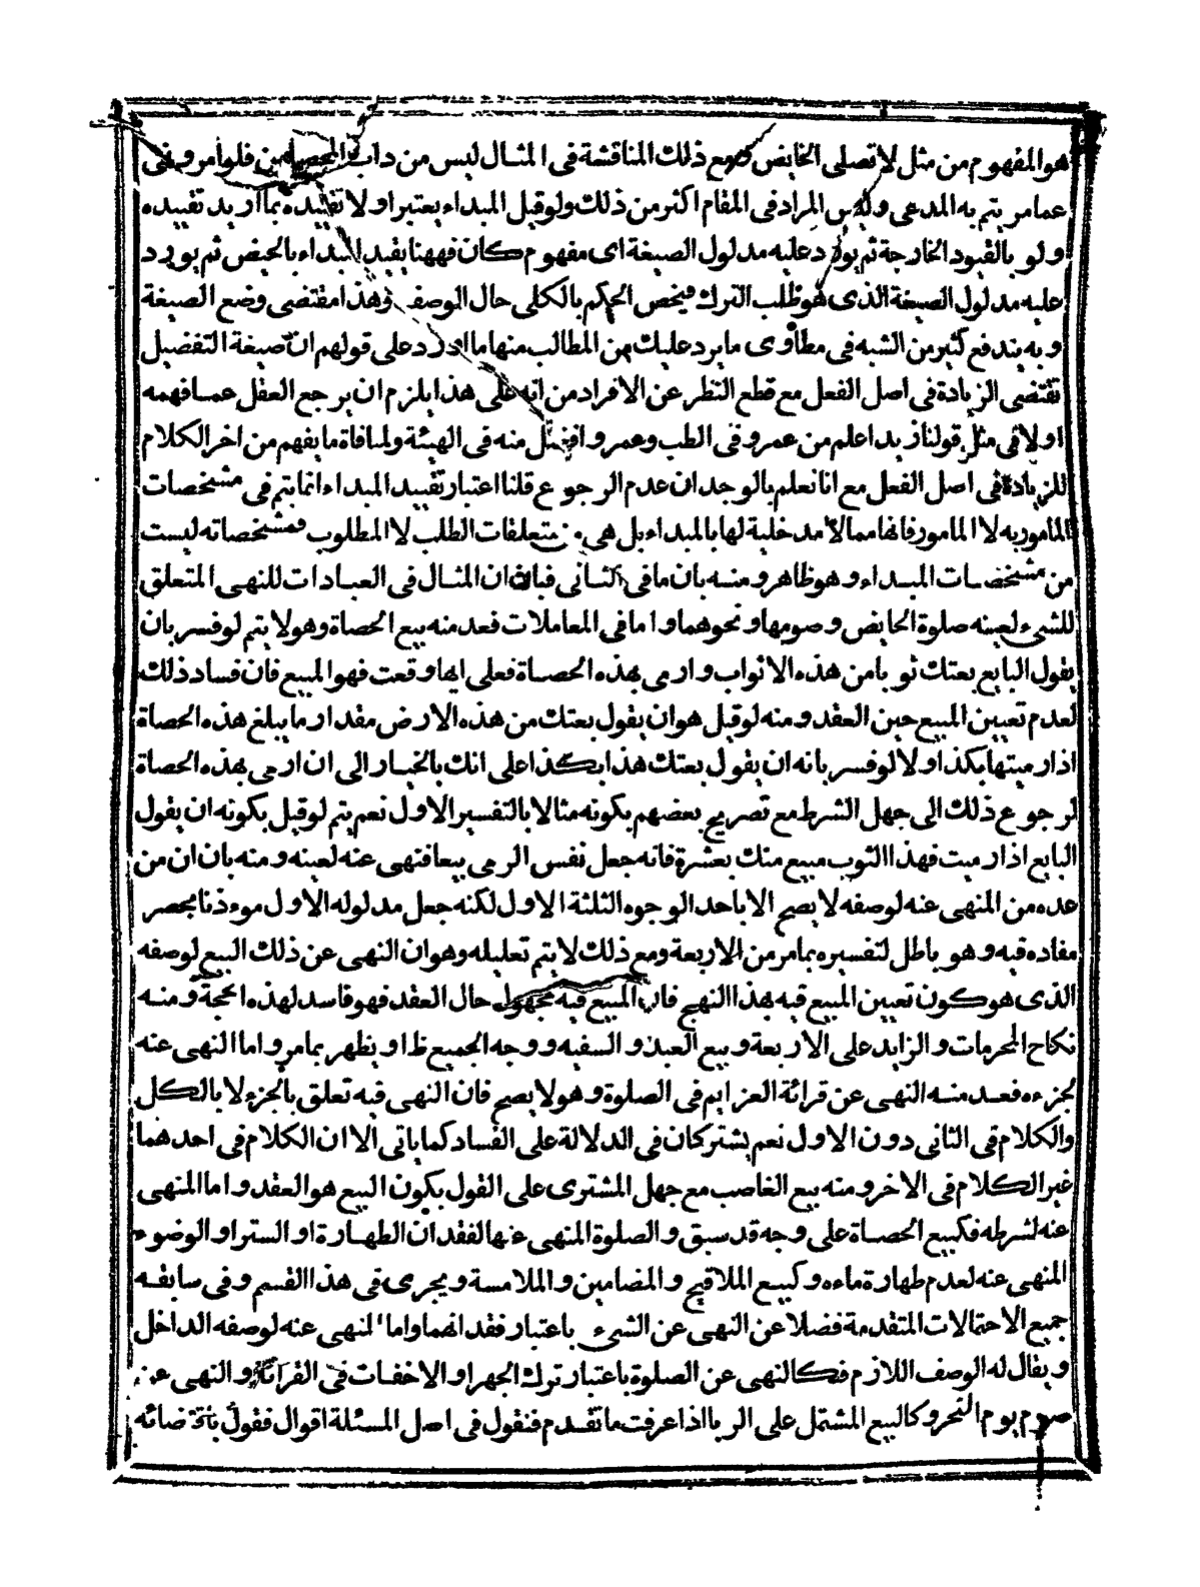 هو المفهوم من مثل لا تصلى الحايض ومع ذلك المناقشة فى المثال ليس من داب المحصلين فلو أمر ونهى
عما مر يتم به المدعى وليس المراد فى المقام اكثر من ذلك ولو قيل المبداء يعتبر اولا تقييده بما اريد تقييده
ولو بالقيود الخارجة ثم يورد عليه مدلول الصيغة اى مفهوم كان فههنا يقيد المبداء بالحيض ثم يورد
عليه مدلول الصيغة الذى هو طلب الترك فيخص الحكم بالكلى حال الوصف وهذا مقتضى وضع الصيغة
وبه يندفع كثير من الشبه فى مطاوى ما يرد عليك من المطالب منها ما اورد على قولهم ان صيغة التفضيل
تقتضى الزيادة فى اصل الفعل مع قطع النظر عن الافراد من انه على هذا يلزم ان يرجع العقل عما فهمه
اولا فى مثل قولنا زيد اعلم من عمرو فى الطب وعمرو افضل منه فى الهيئة ولمنافاة ما يفهم من اخر الكلام
للزيادة فى اصل الفعل مع انا نعلم بالوجدان عدم الرجوع قلنا اعتبار تقييد المبداء انما يتم فى مشخصات
المامور به لا المامور فانها مما لا مدخلية لها بالمبداء بل هى من متعلقات الطلب لا المطلوب فمشخصاته ليست
من مشخصات المبداء وهو ظاهر ومنه بان ما فى الثانى فبان ان المثال فى العبادات للنهى المتعلق
للشىء لعينه صلوة الحايض وصومها ونحوهما واما فى المعاملات فعد منه بيع الحصاة وهو لا يتم لو فسر بان
يقول البايع بعتك ثوبا من هذه الاثواب وارمى بهذه الحصاة فعلى ايها وقعت فهو المبيع فان فساد ذلك
لعدم تعيين المبيع حين العقد ومنه لو قيل هو ان يقول بعتك من هذه الارض مقدار ما يبلغ هذه الحصاة
اذا رميتها بكذا ولا لو فسر بانه ان يقول بعتك هذا بكذا على انك بالخيار الى ان ارمى بهذه الحصاة
لرجوع ذلك الى جهل الشرط مع تصريح بعضهم بكونه مثالا بالتفسير الاول نعم يتم لو قيل بكونه ان يقول
البايع اذا رميت فهذا الثوب مبيع منك بعشرة فانه جعل نفس الرمى بيعا فنهى عنه لعينه ومنه بان ان من
عده من المنهى عنه لوصفه لا يصح الا باحد الوجوه الثلثة الاول لكنه جعل مدلوله الاول موءذنا بحصر
مفاده فيه وهو باطل لتفسيره بما مر من الاربعة ومع ذلك لا يتم تعليله وهو ان النهى عن ذلك البيع لوصفه
الذى هو كون تعيين المبيع فيه بهذا النهج فان المبيع فيه مجهول حال العقد فهو فاسد لهذه الحجة ومنه
نكاح المحرمات والزايد على الاربعة وبيع العبد والسفيه ووجه الجميع ظ او يظهر بما مر واما النهى عنه
لجزءه فعد منه النهى عن قرائة العزايم فى الصلوة وهو لا يصح فان النهى فيه تعلق بالجزء لا بالكل
والكلام فى الثانى دون الاول نعم يشتركان فى الدلالة على الفساد كما ياتى الا ان الكلام فى احدهما
غير الكلام فى الاخر ومنه بيع الغاصب مع جهل المشترى على القول بكون البيع هو العقد واما المنهى
عنه لشرطه فكبيع الحصاة على وجه قد سبق والصلوة المنهى عنها لفقدان الطهارة او الستر او الوضوء
المنهى عنه لعدم طهارة ماءه وكبيع الملاقيح والمضامين والملامسة ويجرى فى هذا القسم وفى سابقه
جميع الاحتمالات المتقدمة فضلا عن النهى عن الشىء باعتبار فقدانهما واما المنهى عنه لوصفه الداخل
ويقال له الوصف اللازم فكالنهى عن الصلوة باعتبار ترك الجهر او الاخفات فى القرائة والنهى عن
صوم يوم النحر وكالبيع المشتمل على الربا اذا عرفت ما تقدم فنقول فى اصل المسئلة اقوال فقول باقتضائه